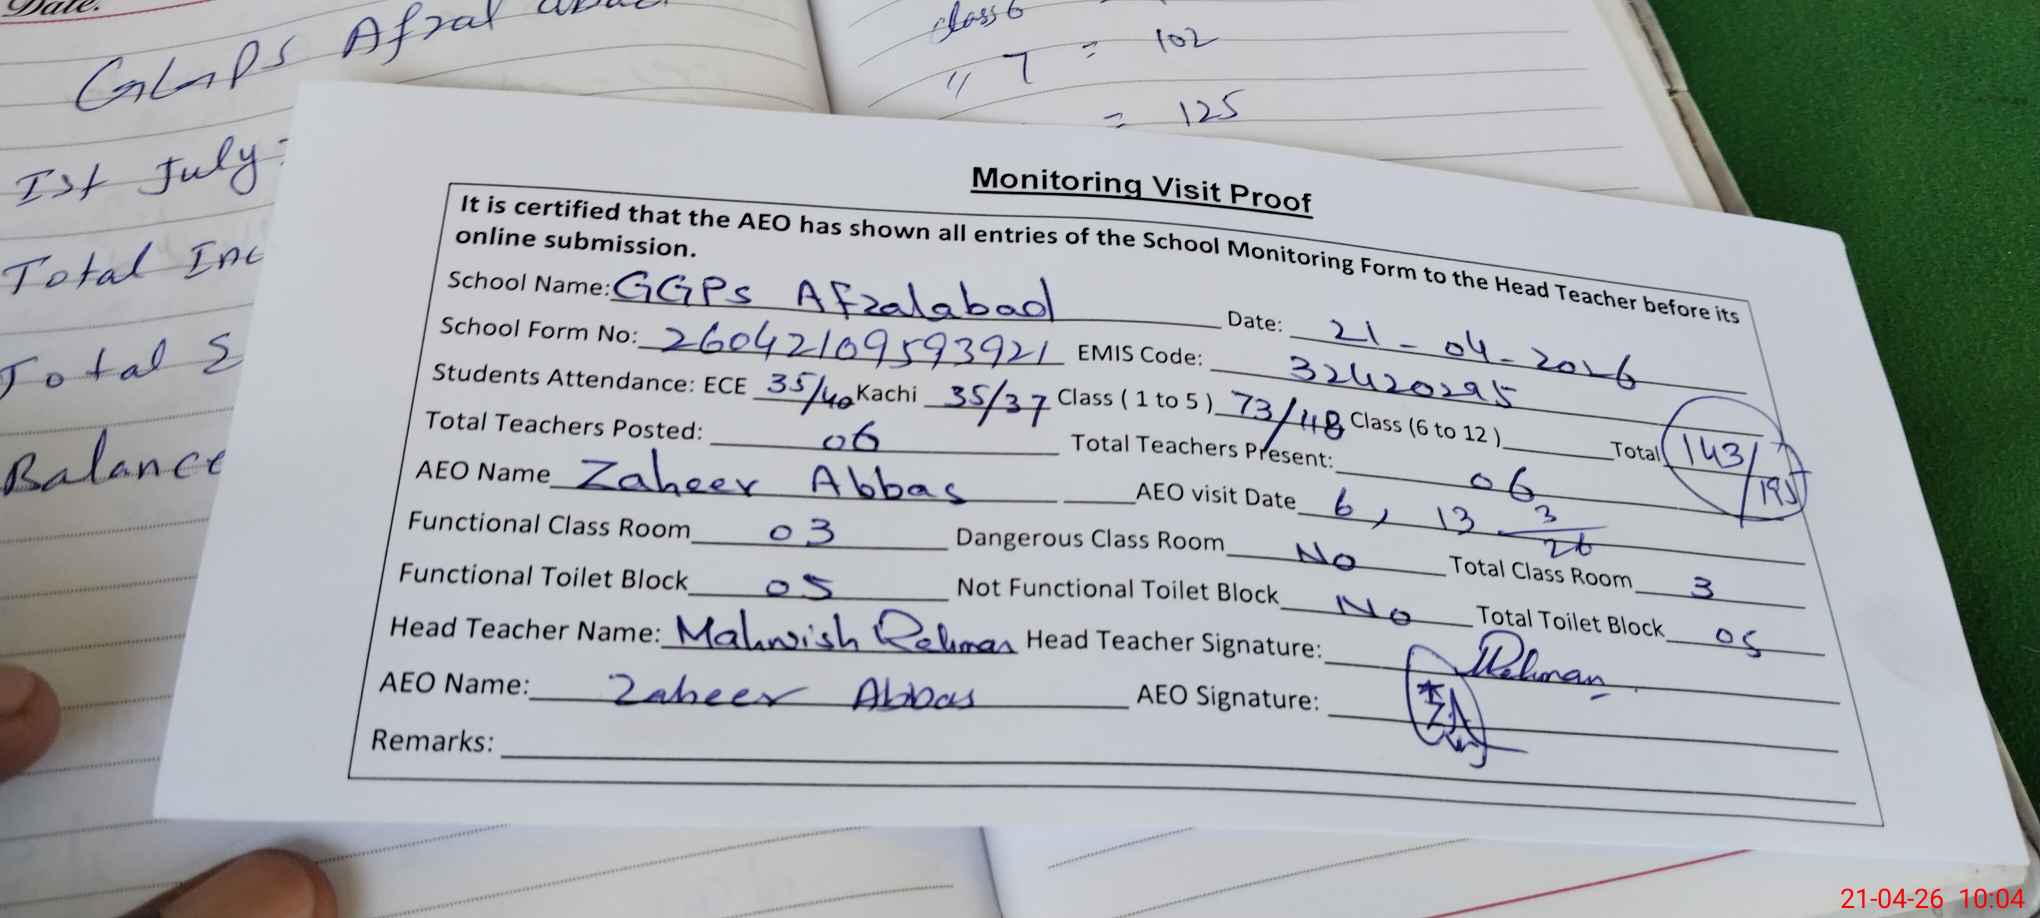 Date.
GGPS Afzal abad
Ist July:
Total Inc
Total E
Balance
class 6
" 7 = 102
= 125
Monitoring Visit Proof
It is certified that the AEO has shown all entries of the School Monitoring Form to the Head Teacher before its
online submission.
School Name: GGPS Afzalabad Date: 21-04-2026
School Form No: 26042109593921 EMIS Code: 32420295
Students Attendance: ECE 35/40 Kachi 35/37 Class ( 1 to 5 ) 73/118 Class (6 to 12 ) Total 143/195
Total Teachers Posted: 06 Total Teachers Present: 06
AEO Name Zaheer Abbas AEO visit Date 6, 13 3/26
Functional Class Room 03 Dangerous Class Room No Total Class Room 3
Functional Toilet Block 05 Not Functional Toilet Block No Total Toilet Block 05
Head Teacher Name: Mahwish Rehman Head Teacher Signature: Rehman
AEO Name: Zaheer Abbas AEO Signature: ZA
Remarks:
21-04-26 10:04